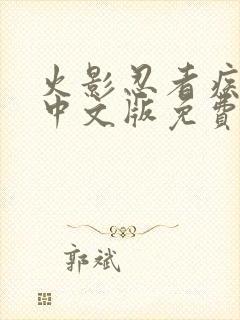 火影忍者疾
中文版免费
郭斌